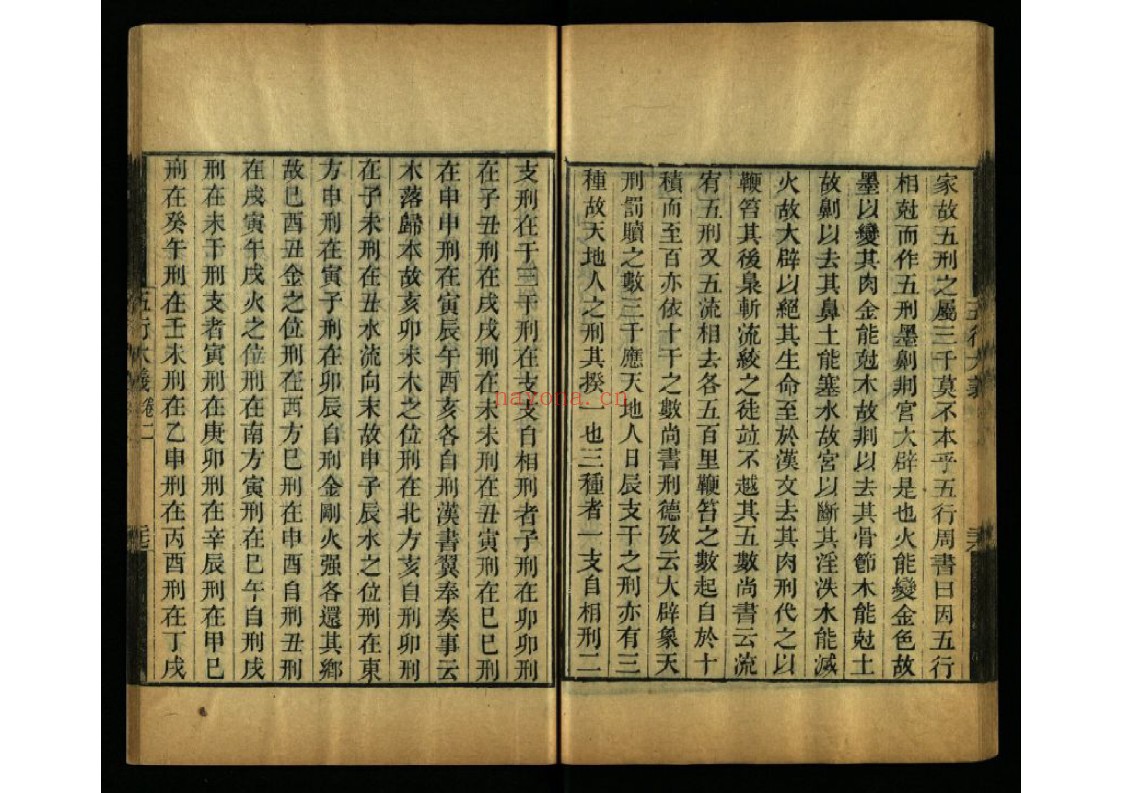 家故五刑之屬三千莫不本乎五行周書曰因五行
相尅而作五刑墨劓剕宮大辟是也火能變金色故
墨以變其肉金能尅木故剕以去其骨節木能尅土
故劓以去其鼻土能塞水故宮以斷其淫泆水能滅
火故大辟以絕其生命至於漢文去其肉刑代之以
鞭笞其後梟斬流絞之徒竝不越其五數尚書云流
宥五刑又五流相去各五百里鞭笞之數起自於十
積而至百亦依十干之數尚書刑德攷云大辟象天
刑罰贖之數三千應天地人日辰支干之刑亦有三
種故天地人之刑其揆一也三種者一支自相刑二
五行大義
支刑在干三干刑在支支自相刑者子刑在卯卯刑
在子丑刑在戌戌刑在未未刑在丑寅刑在巳巳刑
在申申刑在寅辰午酉亥各自刑漢書翼奉奏事云
木落歸本故亥卯未木之位刑在北方亥自刑卯刑
在子未刑在丑水流向末故申子辰水之位刑在東
方申刑在寅子刑在卯辰自刑金剛火强各還其鄉
故巳酉丑金之位刑在西方巳刑在申酉自刑丑刑
在戌寅午戌火之位刑在南方寅刑在巳午自刑戌
刑在未干刑支者寅刑在庚卯刑在辛辰刑在甲巳
刑在癸午刑在壬未刑在乙申刑在丙酉刑在丁戌
五行大義 卷二
nayona.cn